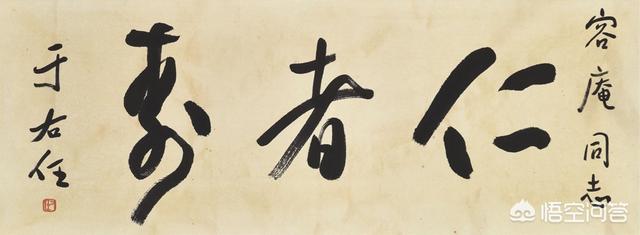 容庵同志
仁者寿
于右任
悟空问答